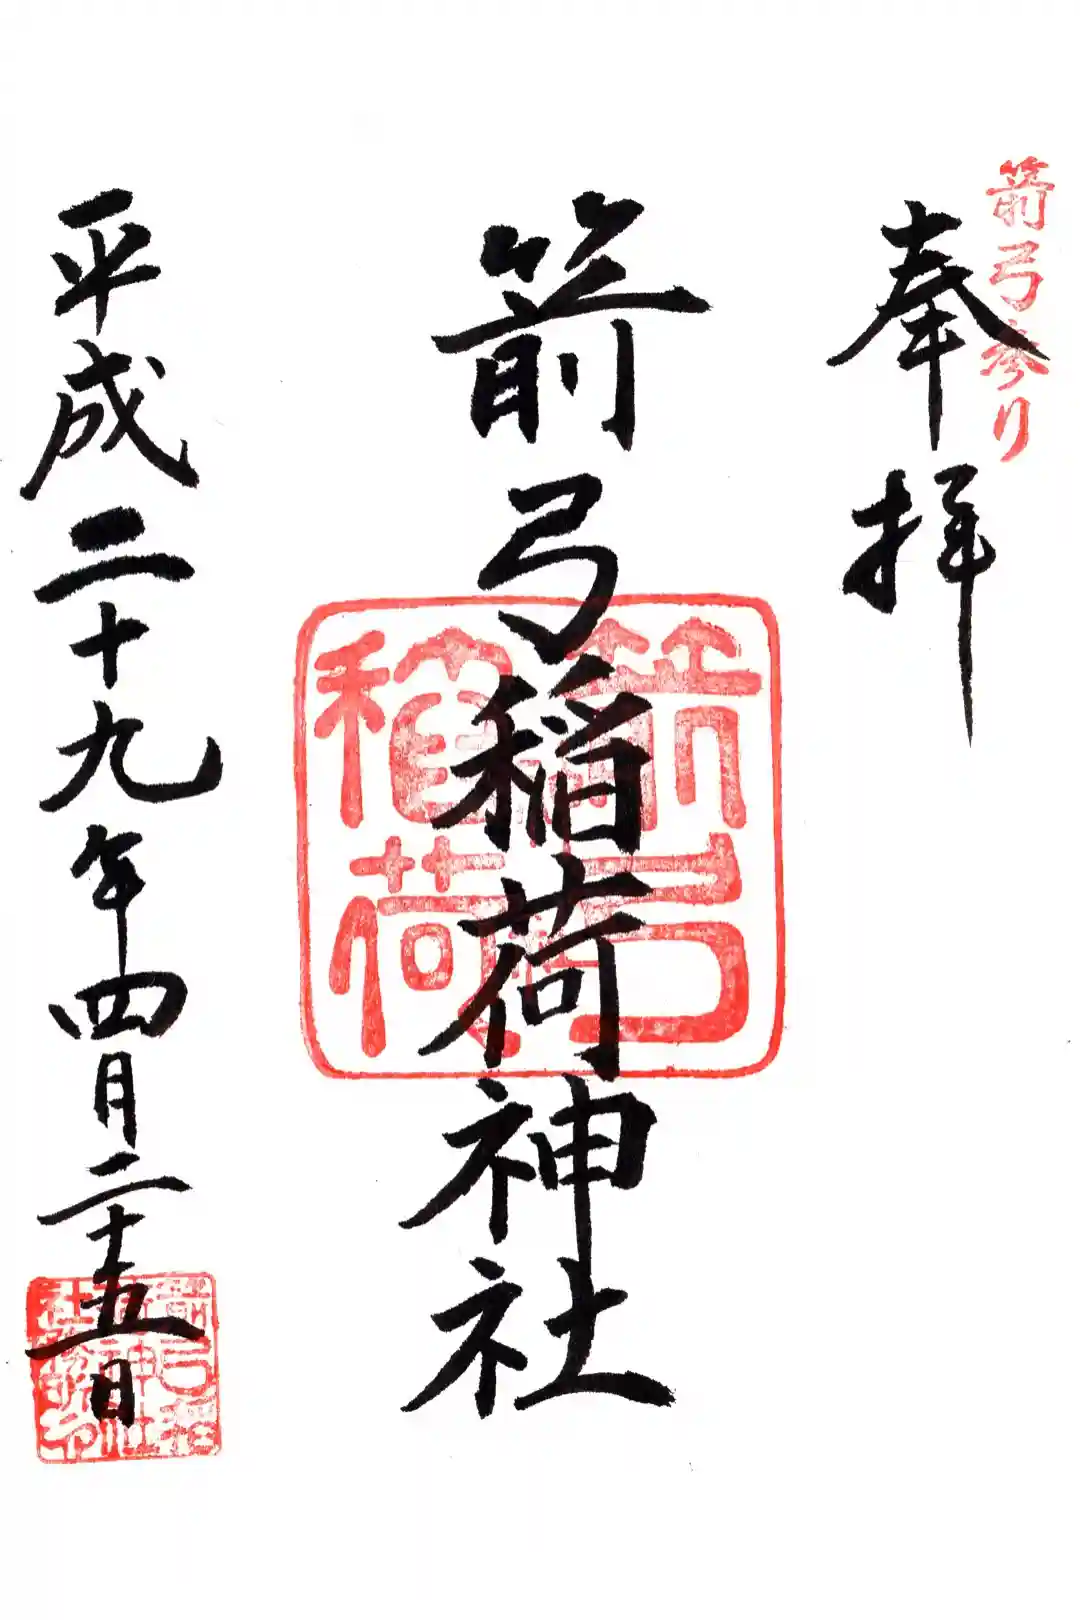 箭弓参り
奉拝
箭弓稲荷神社
箭弓
稲荷
平成二十九年四月二十五日
箭弓稲
荷神社
社務所印